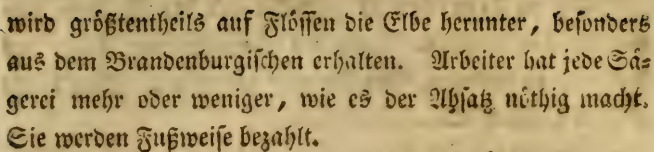 wird größtentheils auf Flössen die Elbe herunter, besonders
aus dem Brandenburgischen erhalten. Arbeiter hat jede Sä-
gerei mehr oder weniger, wie es der Absatz nöthig macht.
Sie werden Fußweise bezahlt.